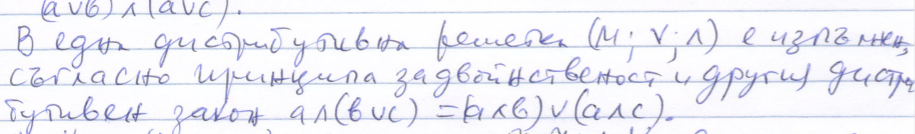 (a∨b)∧(a∨c).
В една дистрибутивна решетка (M; ∨; ∧) е изпълнен,
съгласно принципа за двойнственост и другия дистри
бутивен закон a∧(b∨c) = (a∧b)∨(a∧c).